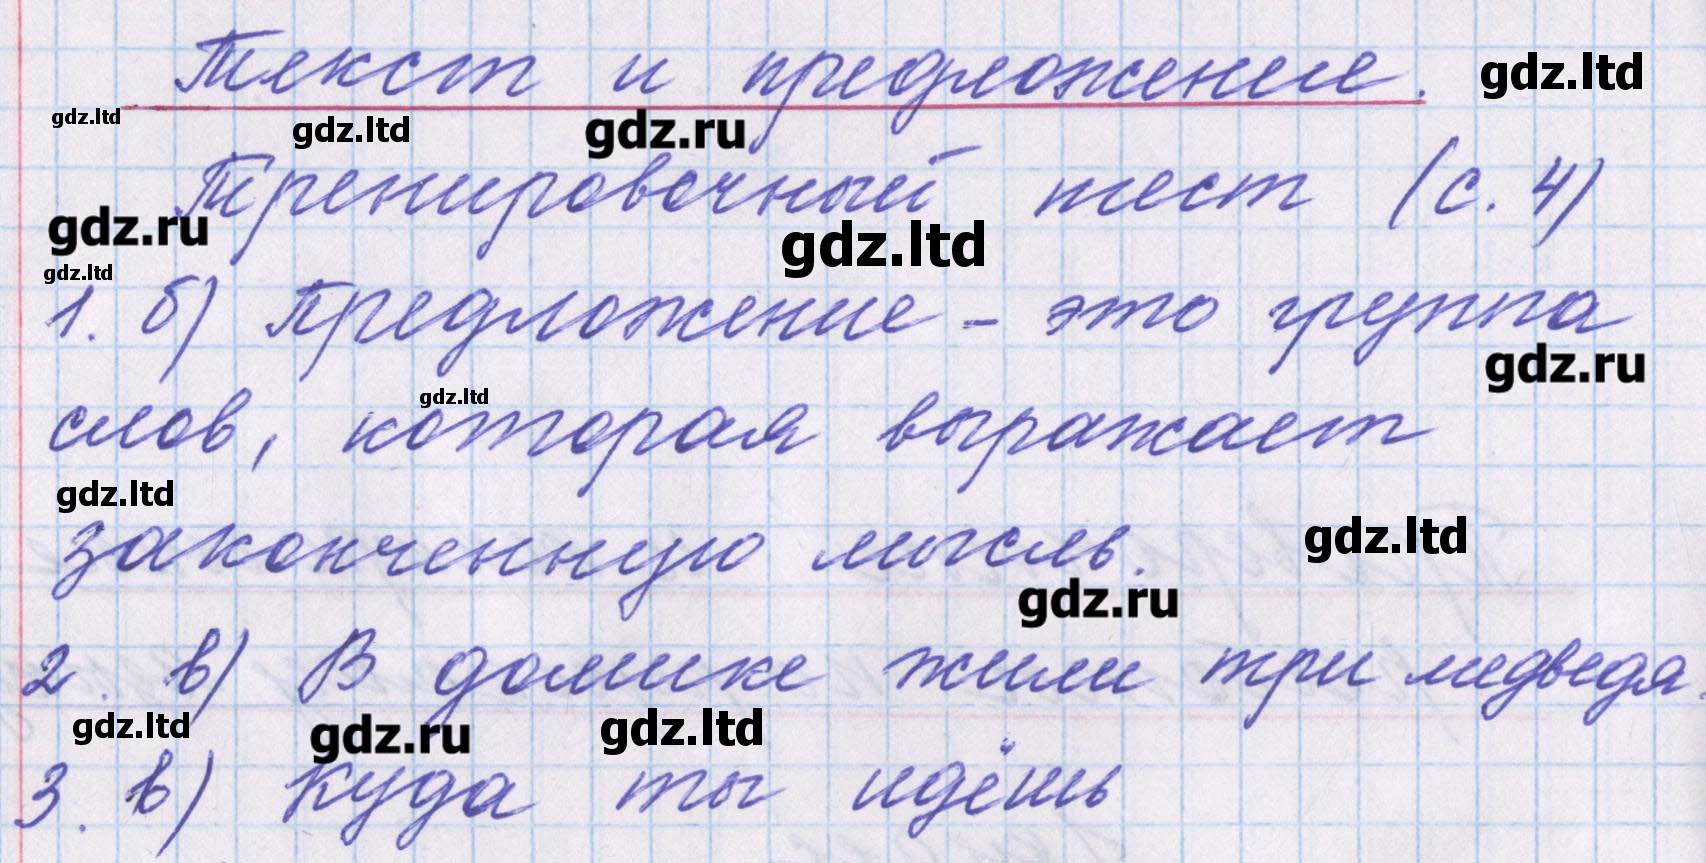 Текст и предложение.
gdz.ltd
gdz.ltd gdz.ltd gdz.ru
Тренировочный тест (с. 4)
gdz.ru gdz.ltd
gdz.ltd
1. б) Предложение - это группа
gdz.ru
gdz.ltd
слов, которая выражает
gdz.ltd gdz.ltd
законченную мысль.
gdz.ru
2. в) В домике жили три медведя
gdz.ltd gdz.ru gdz.ltd
3. в) Куда ты идёшь